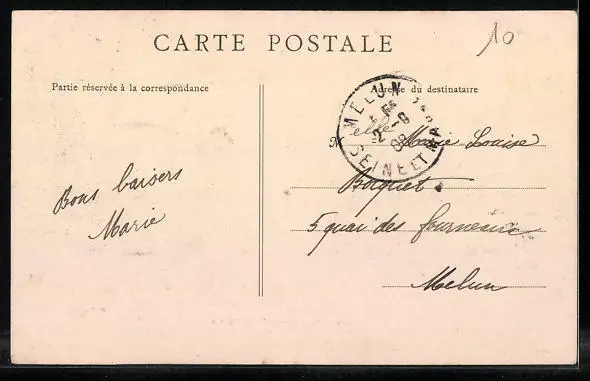 CARTE POSTALE
10
Partie réservée à la correspondance
Adresse du destinataire
MELUN
2-9
08
SEINE ET M
Melle Marie Louise
Bocquet
5 quai des fourneaux
Melun
Bons baisers
Marie